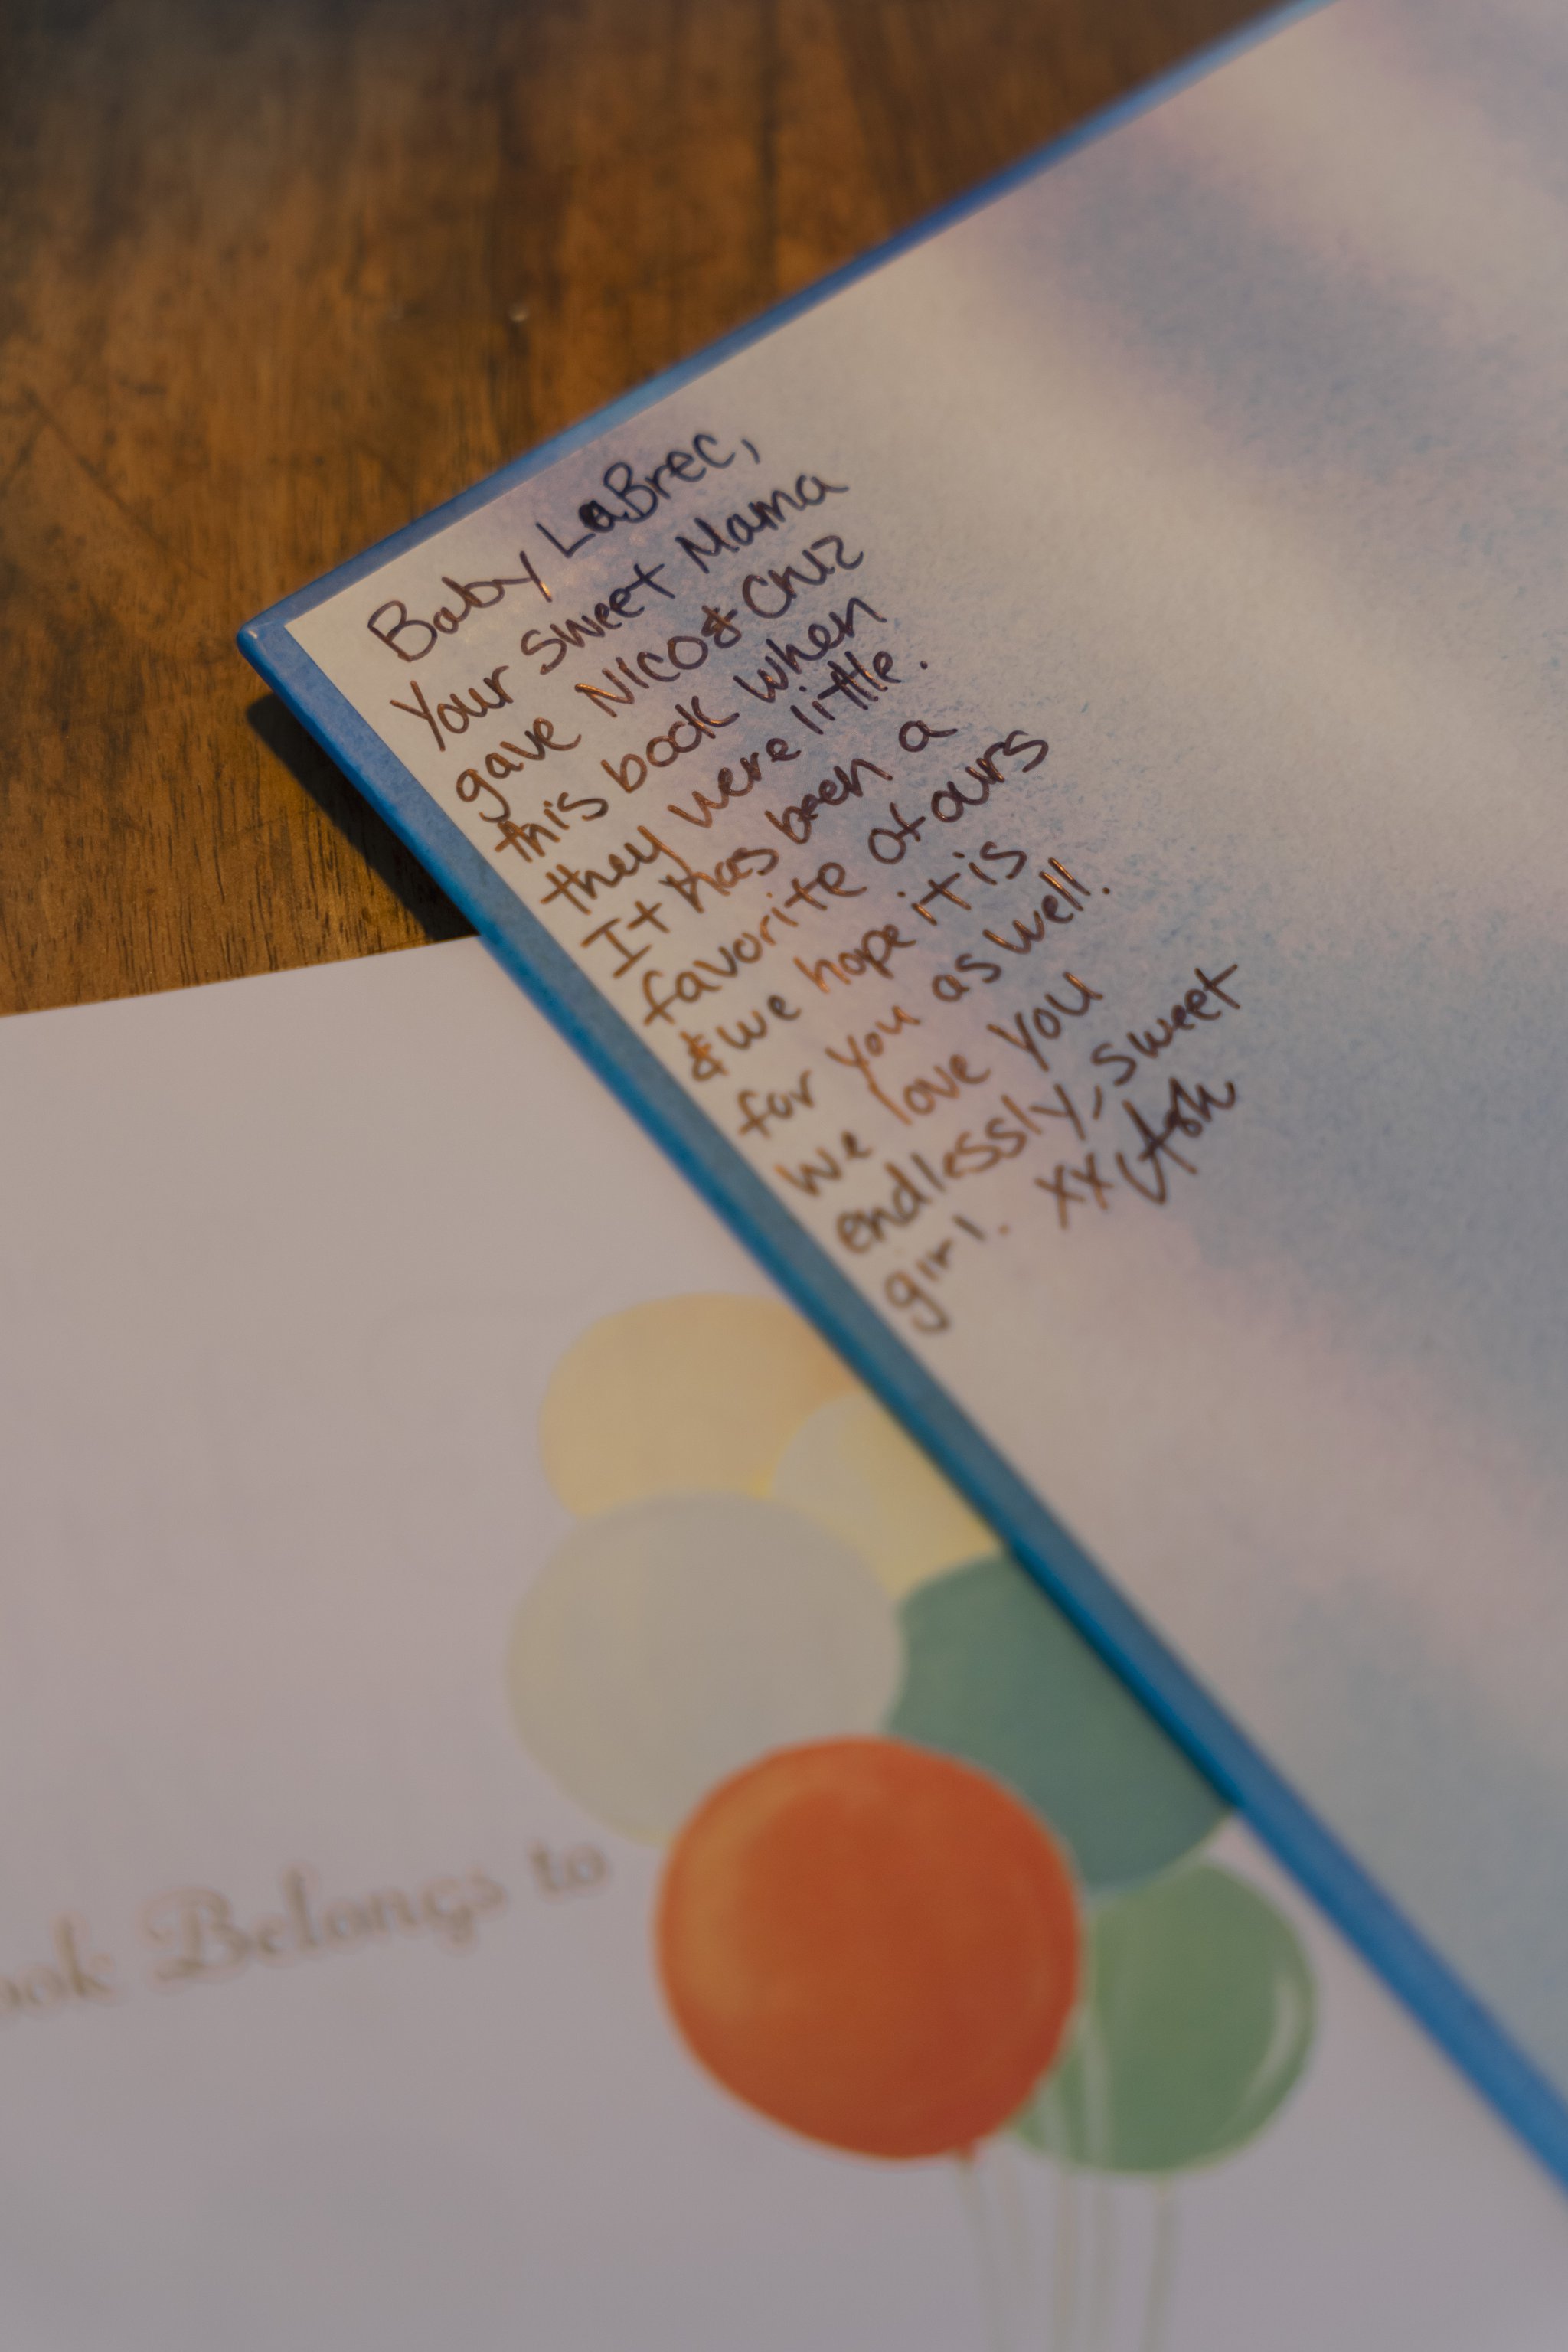 Baby LaBrec,
Your sweet Mama
gave Nico & Cruz
this book when
they were little.
It has been a
favorite of ours
& we hope it is
for you as well.
We love you
endlessly, sweet
girl. xx Ash
ook Belongs to